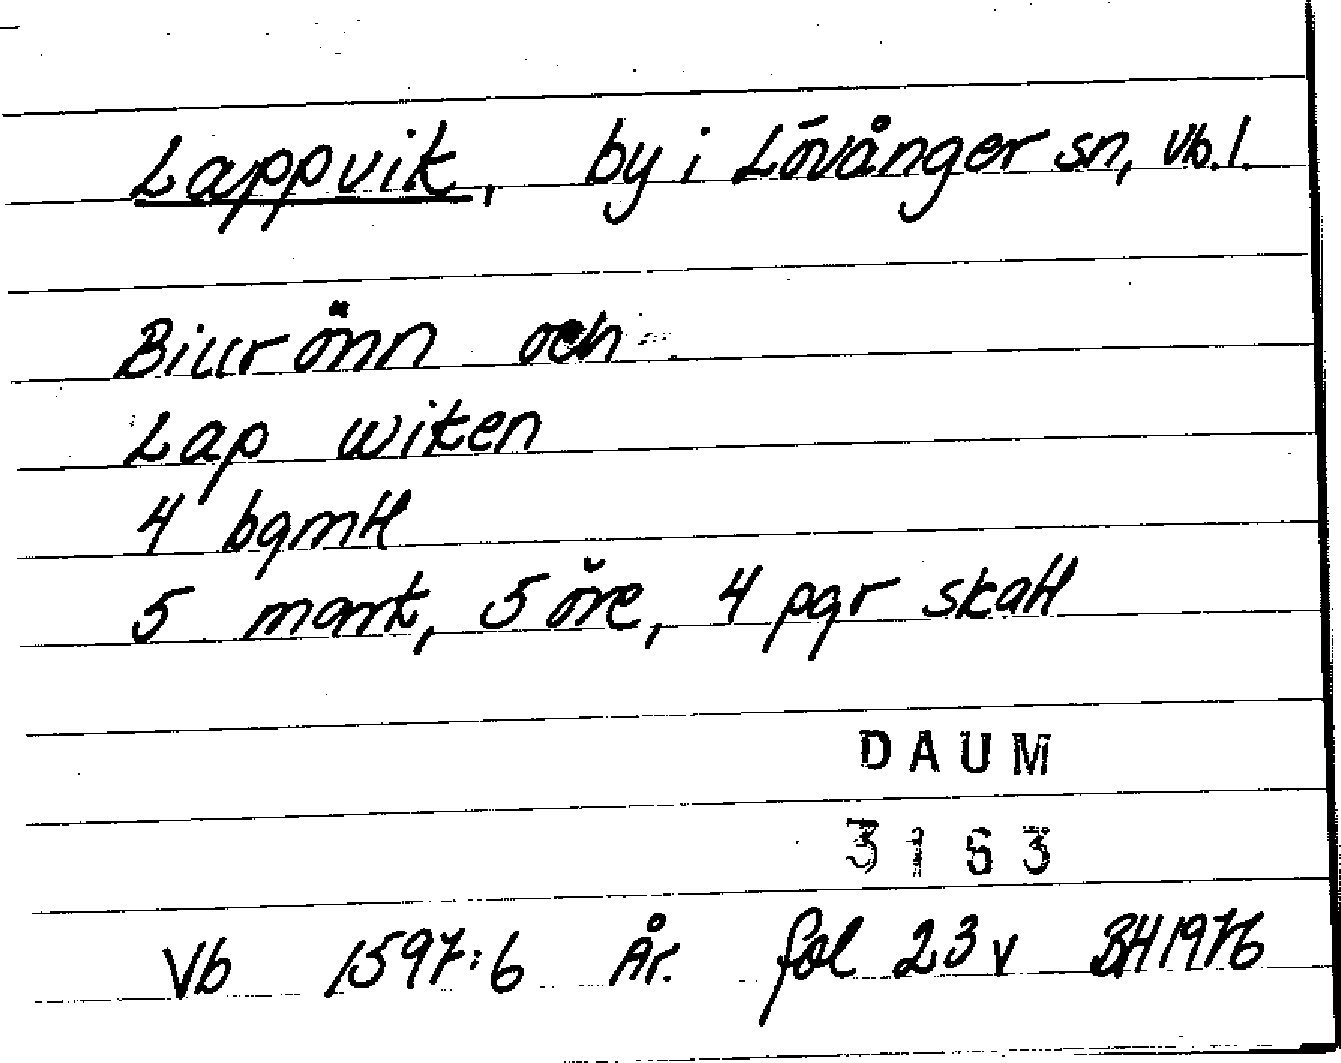 Lappvik, by i Lövånger sn, Vb.l.
Billrönn och
Lap wiken
4 bgmtl
5 mark, 5 öre, 4 pgr skatt
DAUM
3163
Vb 1597:6 År. fol 23 v BH 1976